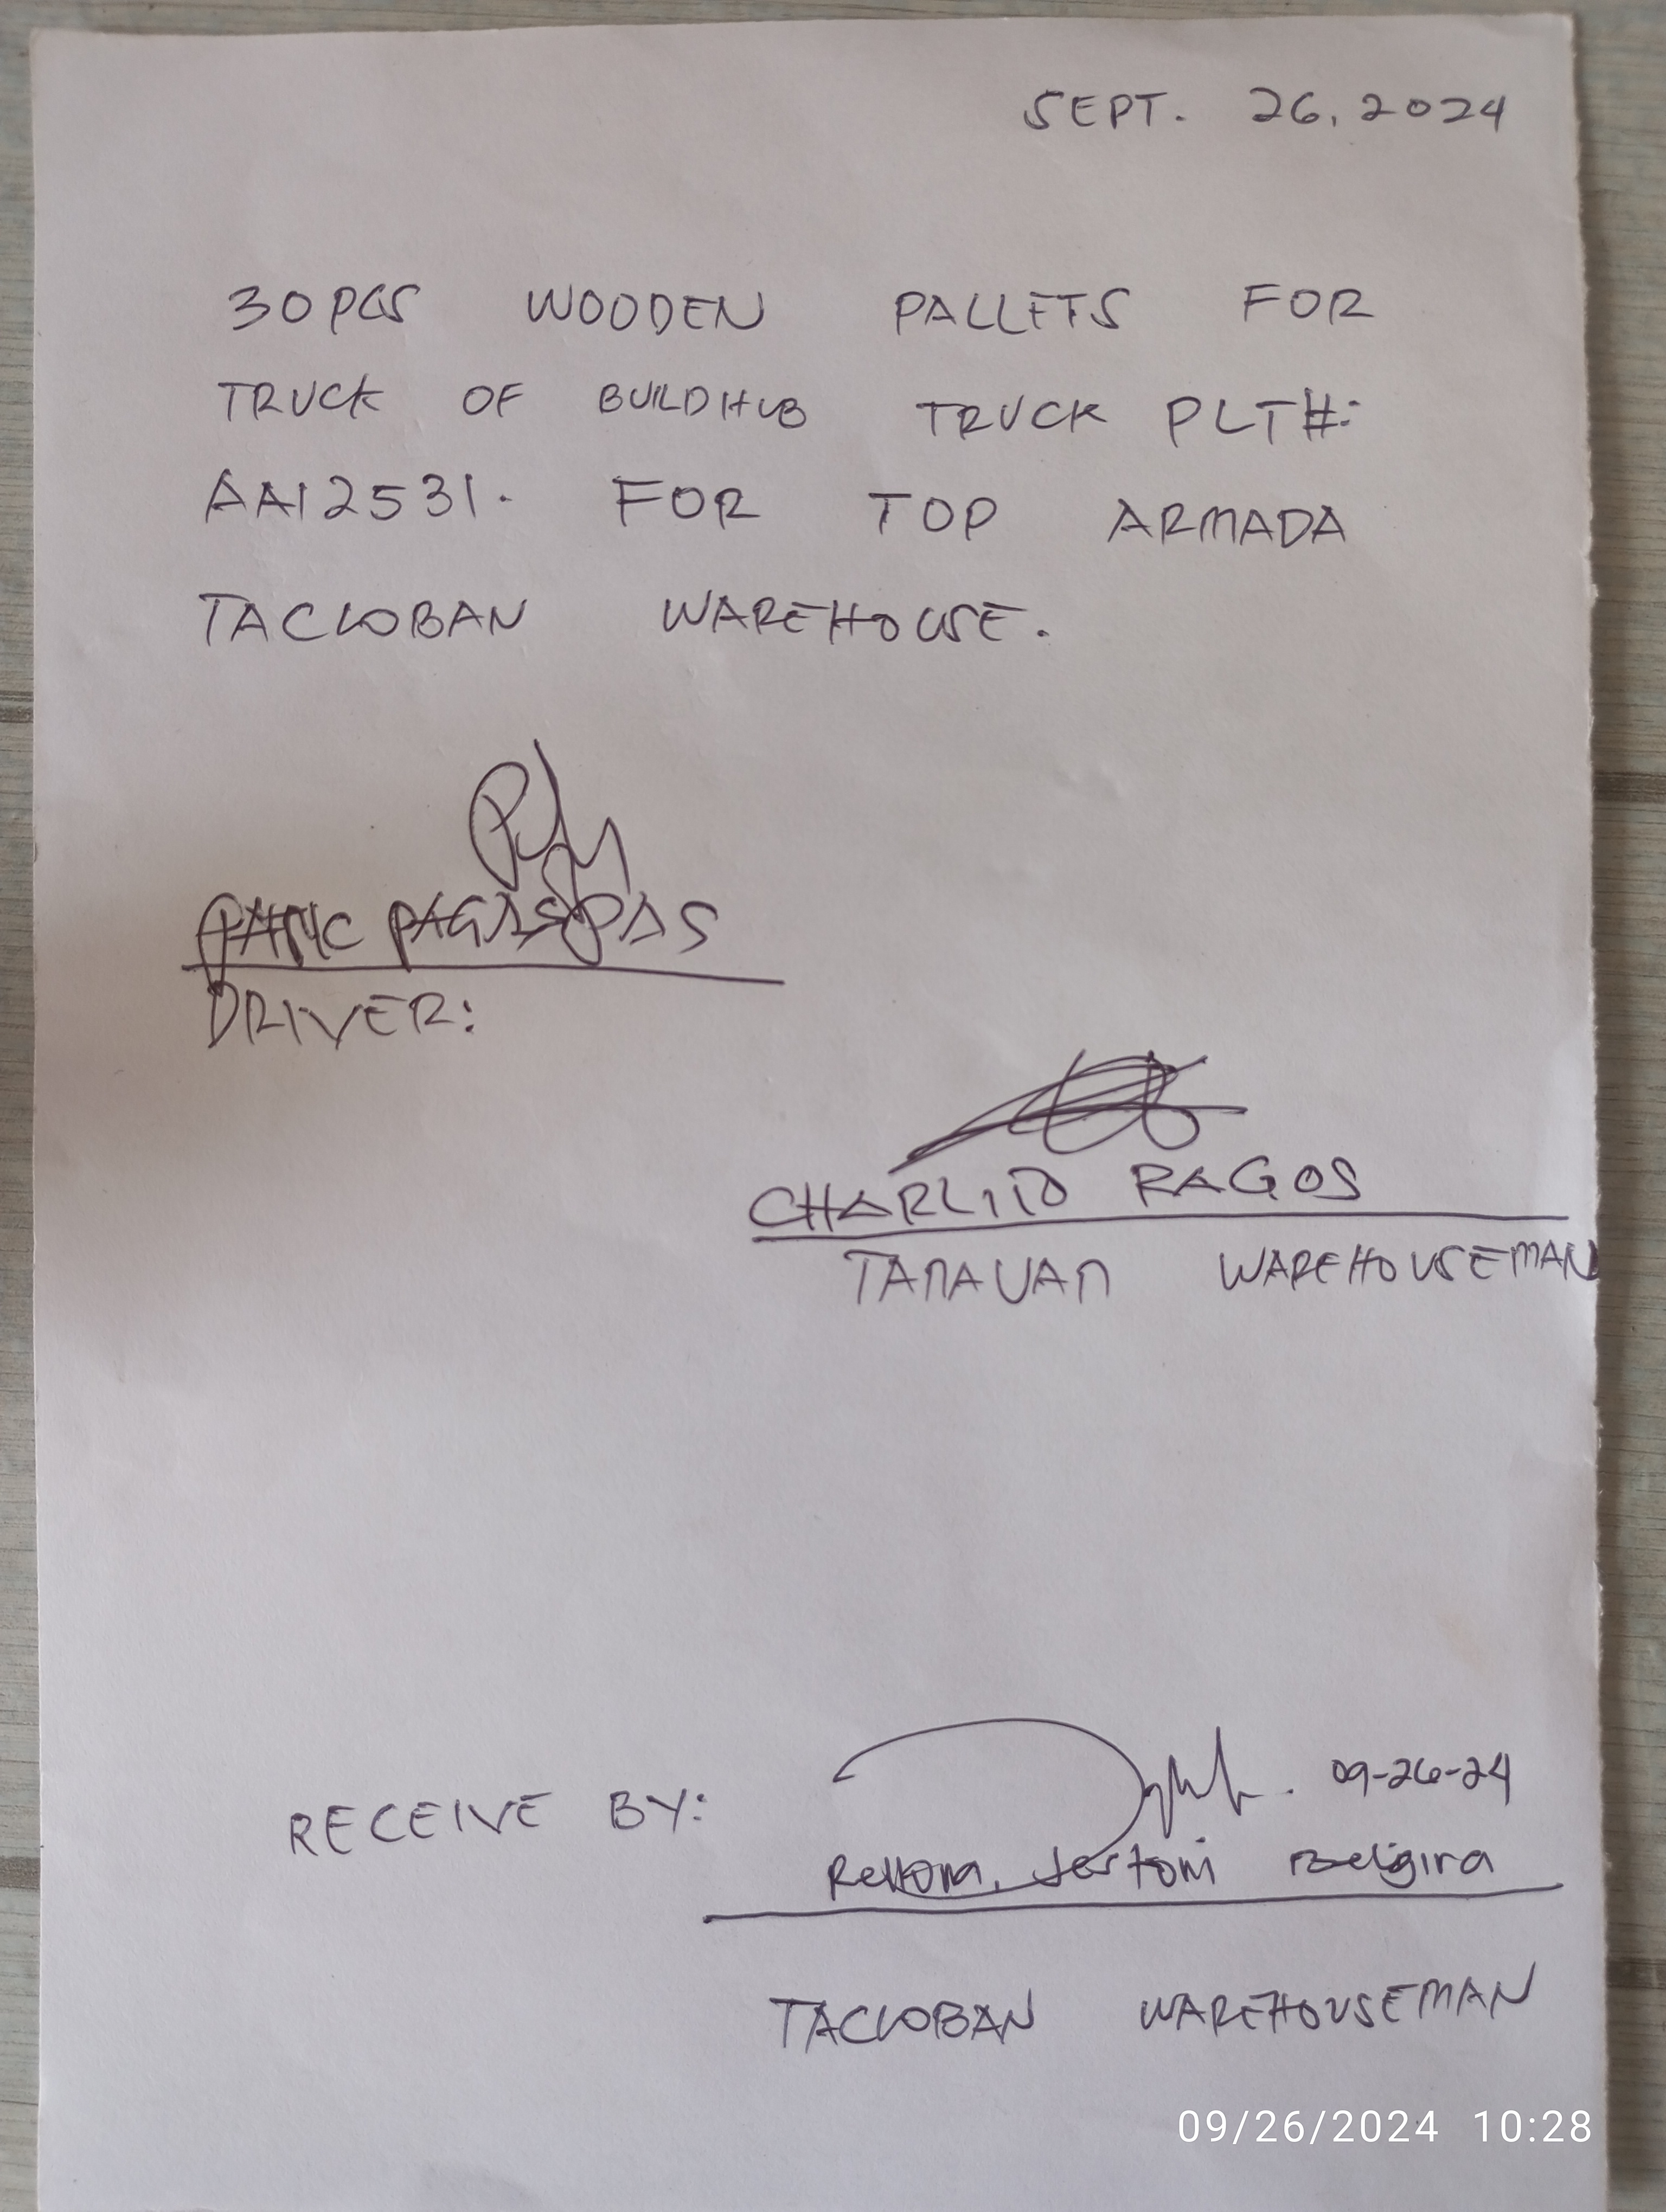 SEPT. 26, 2024
30 PCS WOODEN PALLETS FOR
TRUCK OF BUILDHUB TRUCK PLT#:
AAI2531. FOR TOP ARMADA
TACLOBAN WAREHOUSE.
PAGASPAS
DRIVER:
CHARLITO RAGOS
TANAUAN WAREHOUSEMAN
RECEIVE BY: 09-26-24
Rellona, Jestoni Belgira
TACLOBAN WAREHOUSEMAN
09/26/2024 10:28